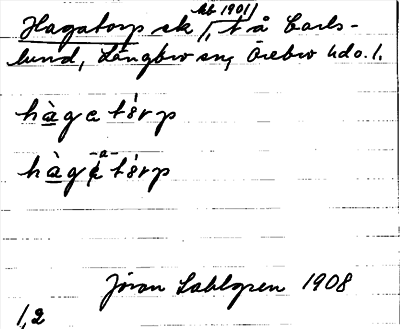 Hagatorp sk /, kb 1901/ t å Carls-
lund, Längbro sn, Örebro hd o. l.
hàgatórp
hàg-a-tórp
Jöran Sahlgren 1908
1,2